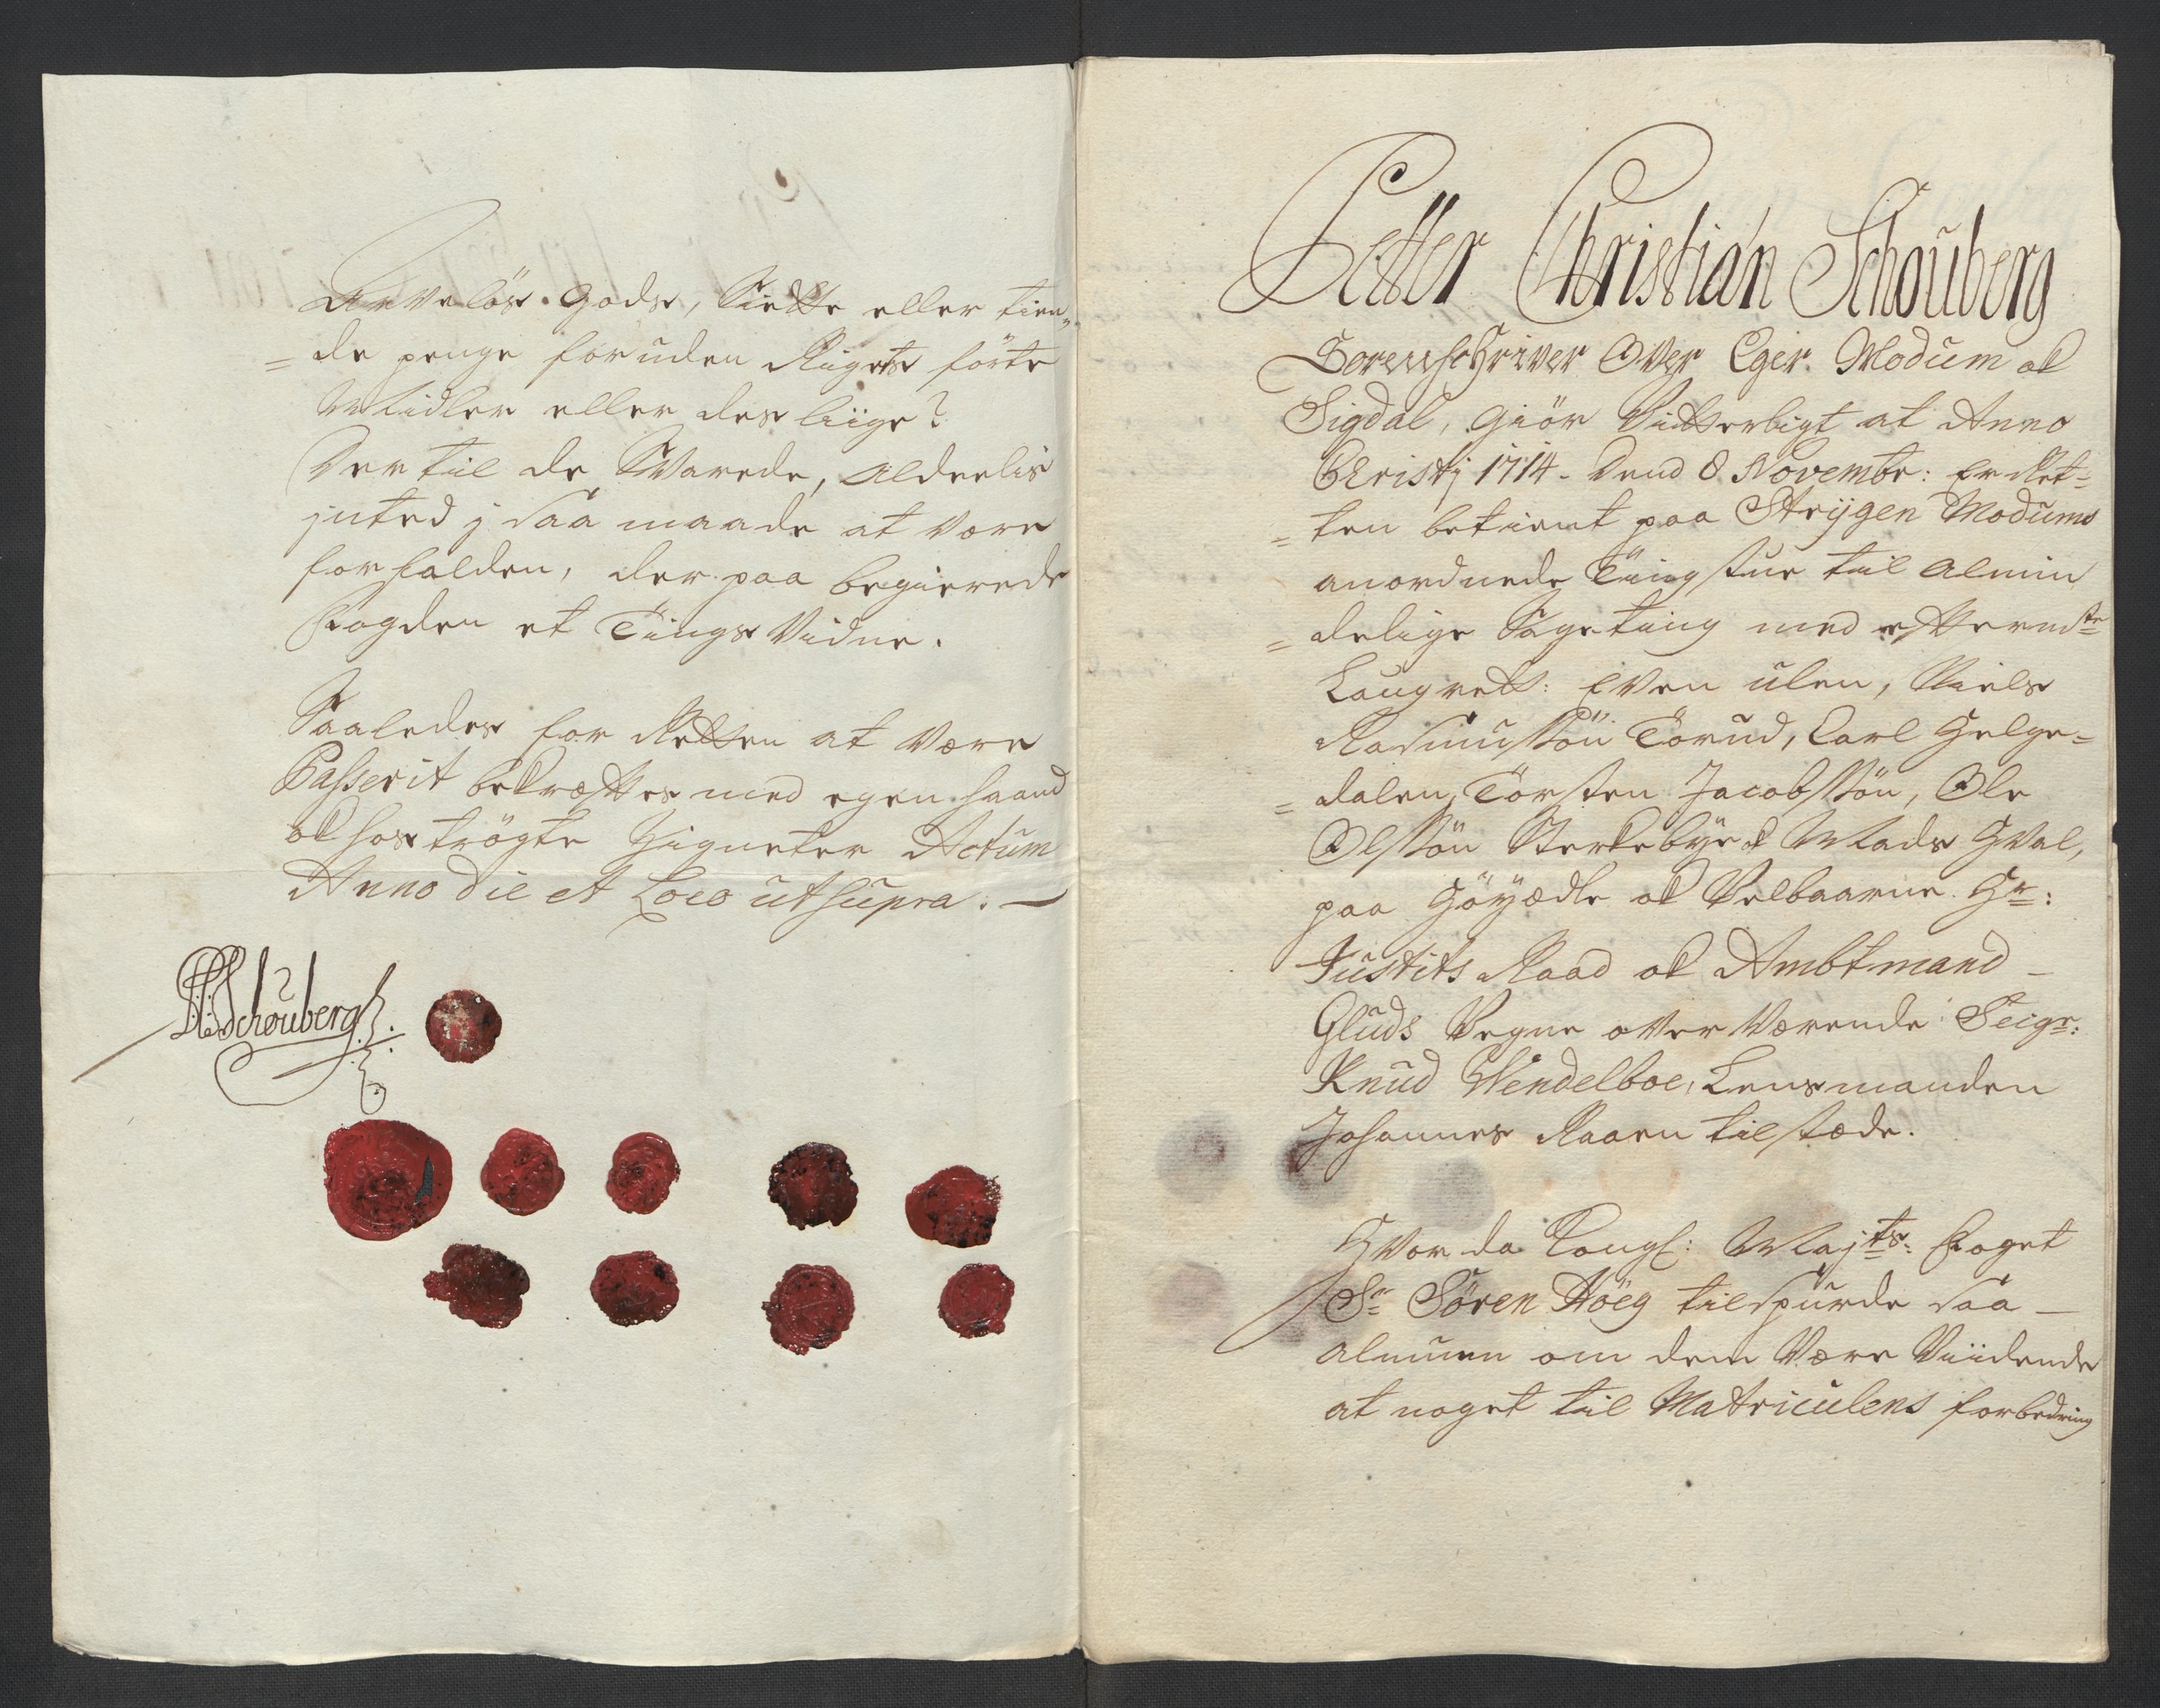 Arveløs Gods, Siette eller tien-
=de penge foruden Rigets førte
Midler eller des liige?
Der til de Svarede, Aldeelis
inted j saa maade at være
forfalden, der paa begierede
Fogden et Tings Vidne.
Saaledes for Retten at være
Passerit bekræfftes med egen haand
ok hos trøgte Zigneter Actum
Anno die et Loco ut supra. —
PCSchouberg
Petter Christian Schouberg
Sorenschriver Over Eger. Modum ok
Sigdal, giör Vitterligt at Anno
Christj 1714. Dend 8 Novembr: Er Ret=
=ten betient paa Strijgen Modums
anordnede Tingstue til Almin
=delige Sageting med effterne
Laugrett: Even ulen, Niels
Rasmussön Torud, Carl Helge=
=dalen, Törsten Jacobssön, Ole
Olssön Sterkebye ok Mads Hval,
paa Höyædle ok Velbaarne Hr:
Justits Raad ok Ambtmand –
Gluds Vegne over Værende Seigr:
Knud Wendelboe, Lensmanden
Johannes Kaaen tilstæde.
Hvor da Kongl: Majts: Foget
Sr Sören Höeg tilspurde saa –
Almuen om dem Være Viidende
at noget til Matriculens forbedring